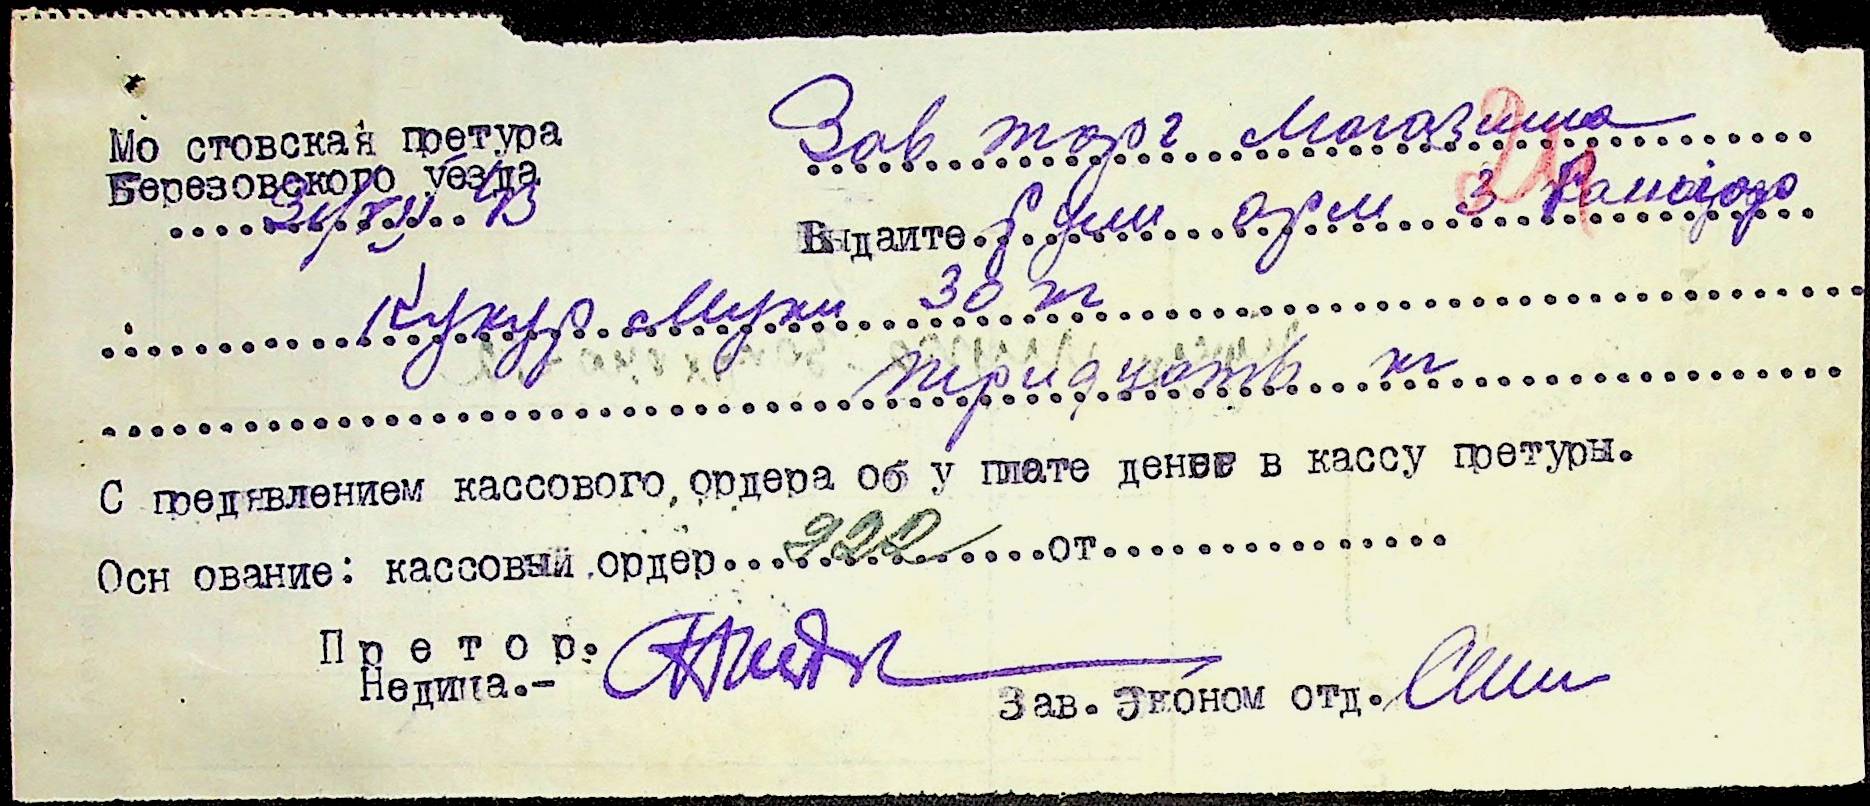 Мо стовская претура
Березовского уезда
Зав торг Магазина
Выдайте
Кукур муки 30 кг
тридцать кг
С предявлением кассового ордера об у плате денег в кассу претуры.
Осн ование: кассовый ордер 222 от
Претор.
Недица.-
Зав. Эконом отд.